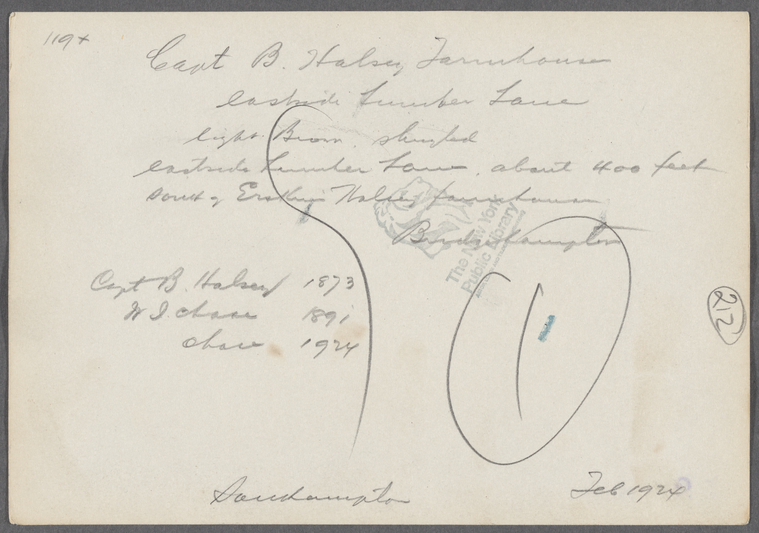 119+
Capt B. Halsey Farmhouse
eastside Lumber Lane
light Brown shingled
eastside Lumber Lane, about 400 feet
south of Halsey farmhouse
Bridgehampton
The New York
Public Library
Capt B. Halsey 1873
W I. Chase 1891
Chase 1924
212
Southampton
Feb 1924